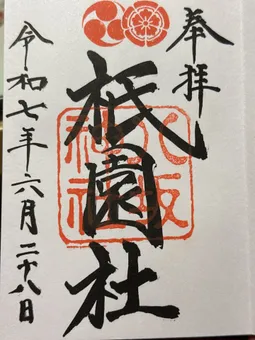 奉拝
八坂
神社
祇園社
令和七年六月二十八日